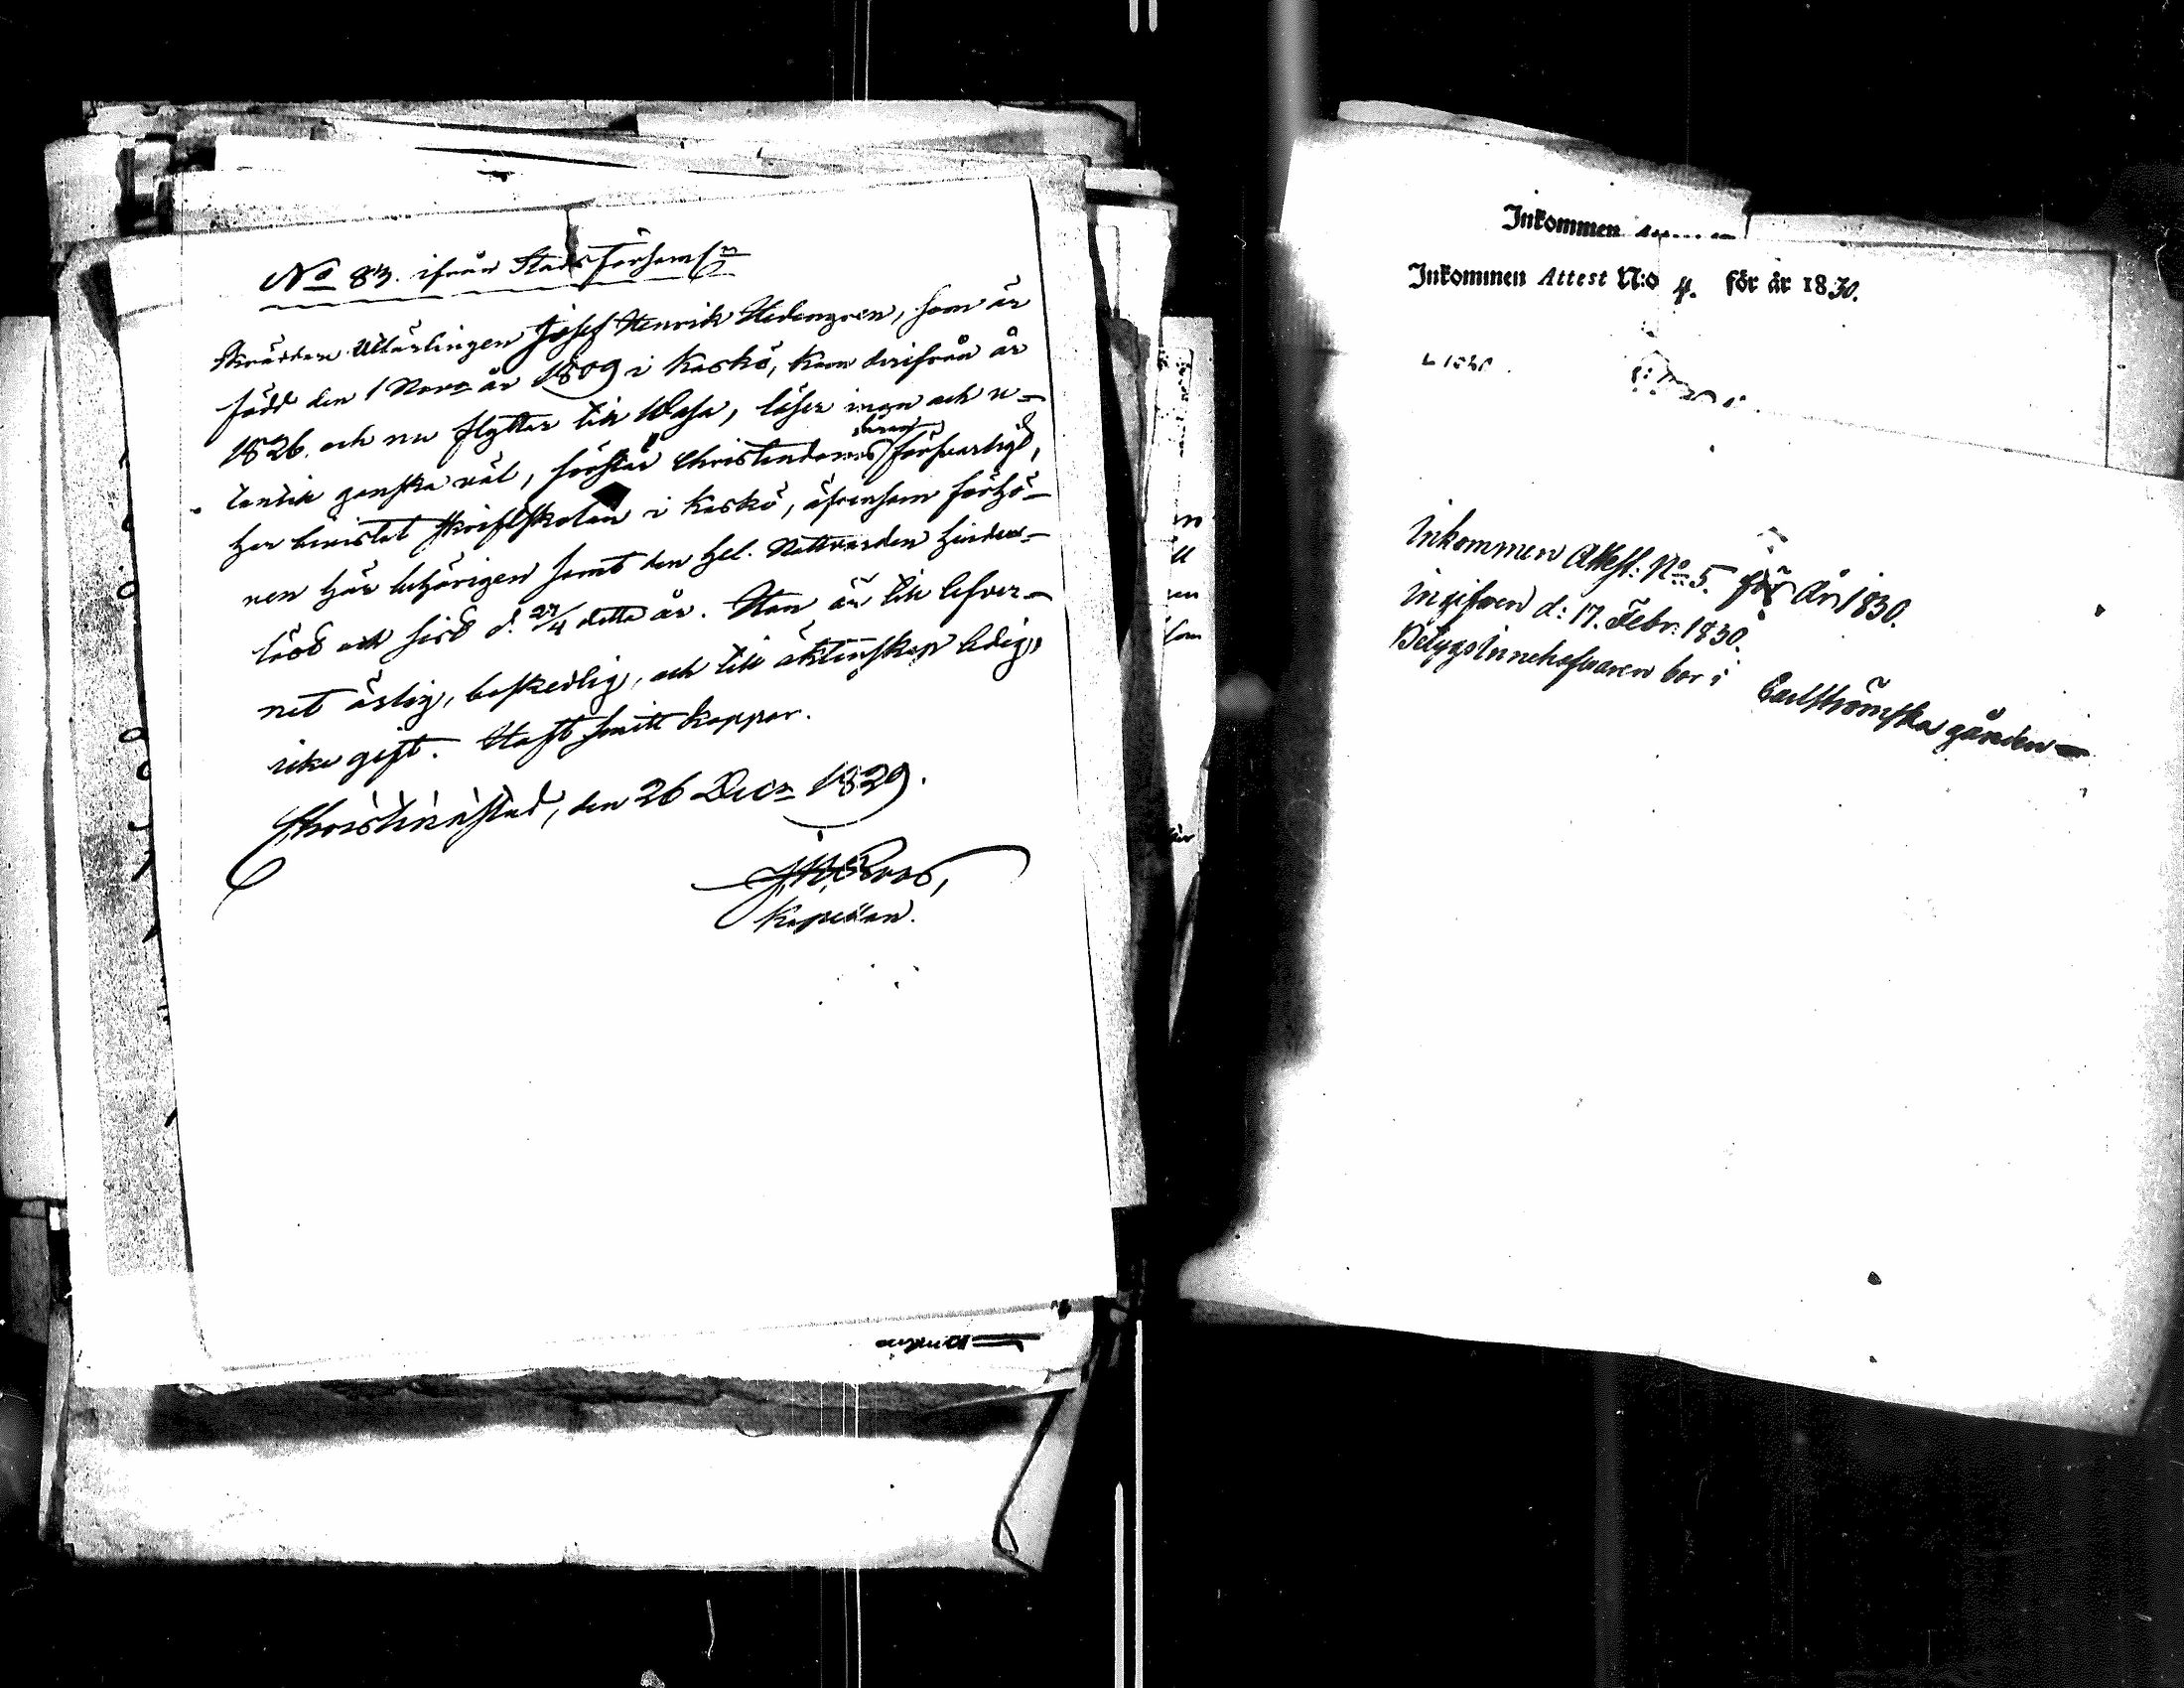 No 83. ifrån Stads Församl:n
Skrädare Utlärlingen Josef Henrik Hedengren, som är
född den 1 Nov. år 1809 i Kaskö, kom derifrån år
1826. och nu flyttar till Wasa, läser innan och u-
tantill ganska väl, förstår Christendomens försvarligt,
har bevistat Skriftskolan i Kaskö, äfvensom förhö-
ren här behörigen samt den hel. Nattvarden hinder-
löst och sist d. 27/4 detta år. Han är till lefver-
net ärlig, beskedlig, och till äktenskap ledig,
icke gift. Haft koppor.
Christinæstad, den 26 Dec. 1829.
Roos,
Kapellan.
Inkommen
Inkommen Attest N:o 4. för år 1830.
Inkommen Attest: No 5. för År 1830.
Ingifven d: 17. Febr: 1830.
Betygsinnehafvaren bor i Carlströmska gården